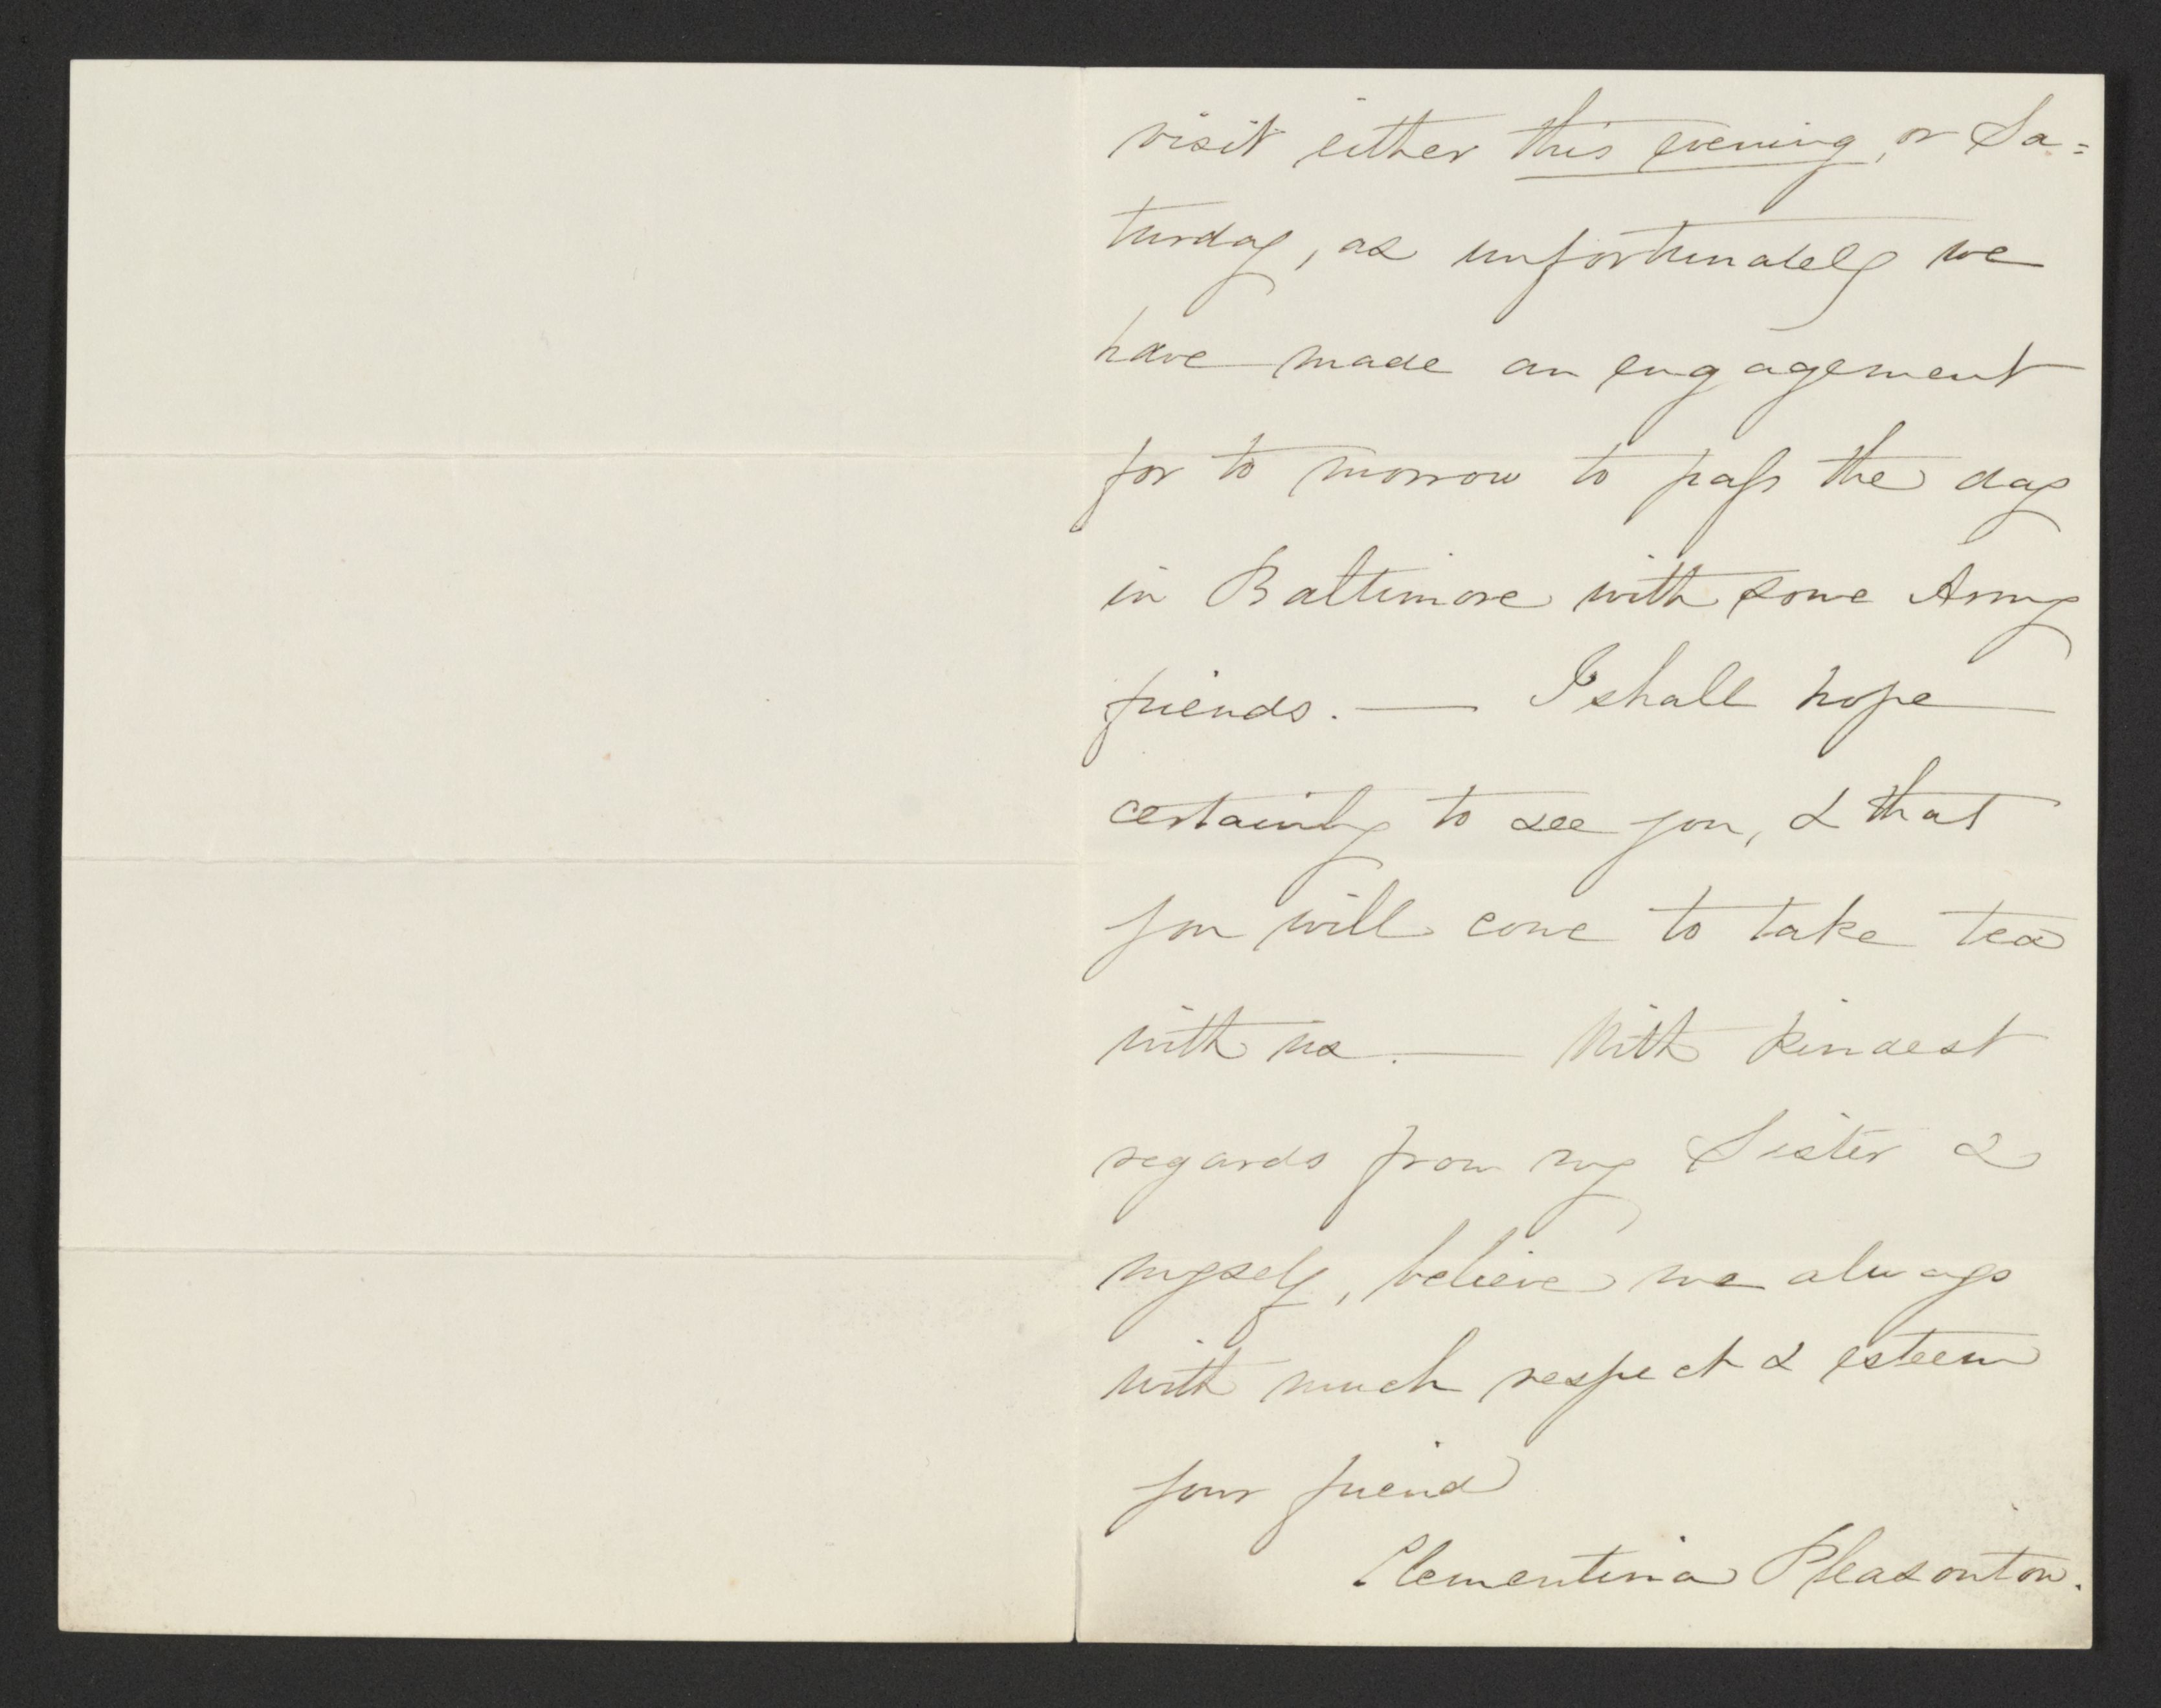 visit either this evening, or Sa=
turday, as unfortunately we
have made an engagement
for to morrow to pass the day
in Baltimore with some Army
friends. — I shall hope
certainly to see you, & that
you will come to take tea
with us. — With kindest
regards from my Sister &
myself, believe me always
with much respect & esteem
your friend
Clementina Pleasonton.